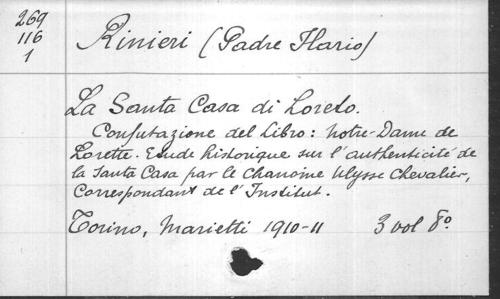 269
116
1
Rinieri (Padre Ilario)
La Santa Casa di Loreto.
Confutazione del Libro: Notre-Dame de
Lorette. Etude historique sur l'authenticité de
la Santa Casa par le Chanoine Ulysse Chevalier,
Correspondant de l'Institut.
Torino, Marietti 1910-11 3 vol 8º